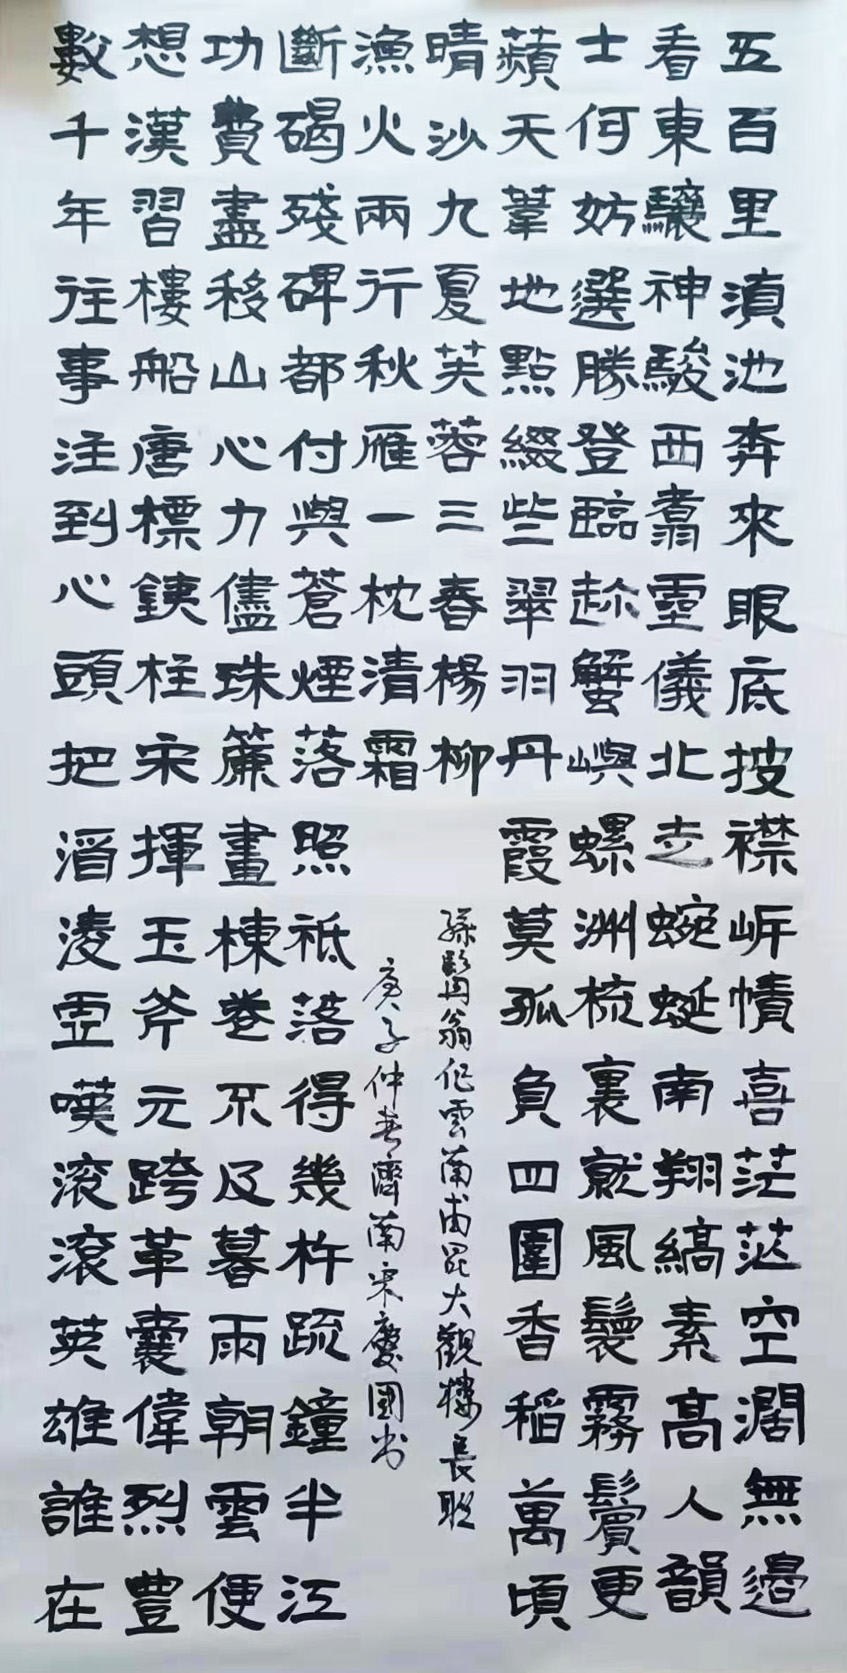 五百里滇池奔來眼底披襟岸幘喜茫茫空濶無邊
看東驤神駿西翥靈儀北走蜿蜒南翔縞素高人韻
士何妨選勝登臨趂蟹嶼螺洲梳裹就風鬟霧鬢更
蘋天葦地點綴些翠羽丹霞莫孤負四圍香稻萬頃
晴沙九夏芙蓉三春楊柳
數千年往事注到心頭把酒凌虛嘆滾滾英雄誰在
想漢習樓船唐標銕柱宋揮玉斧元跨革囊偉烈豐
功費盡移山心力儘珠簾畫棟卷不及暮雨朝雲便
斷碣殘碑都付與蒼煙落照祗落得幾杵疏鐘半江
漁火兩行秋雁一枕清霜
孫髯翁作雲南甫昆大觀樓長聯
庚子仲春濟南宋慶國书